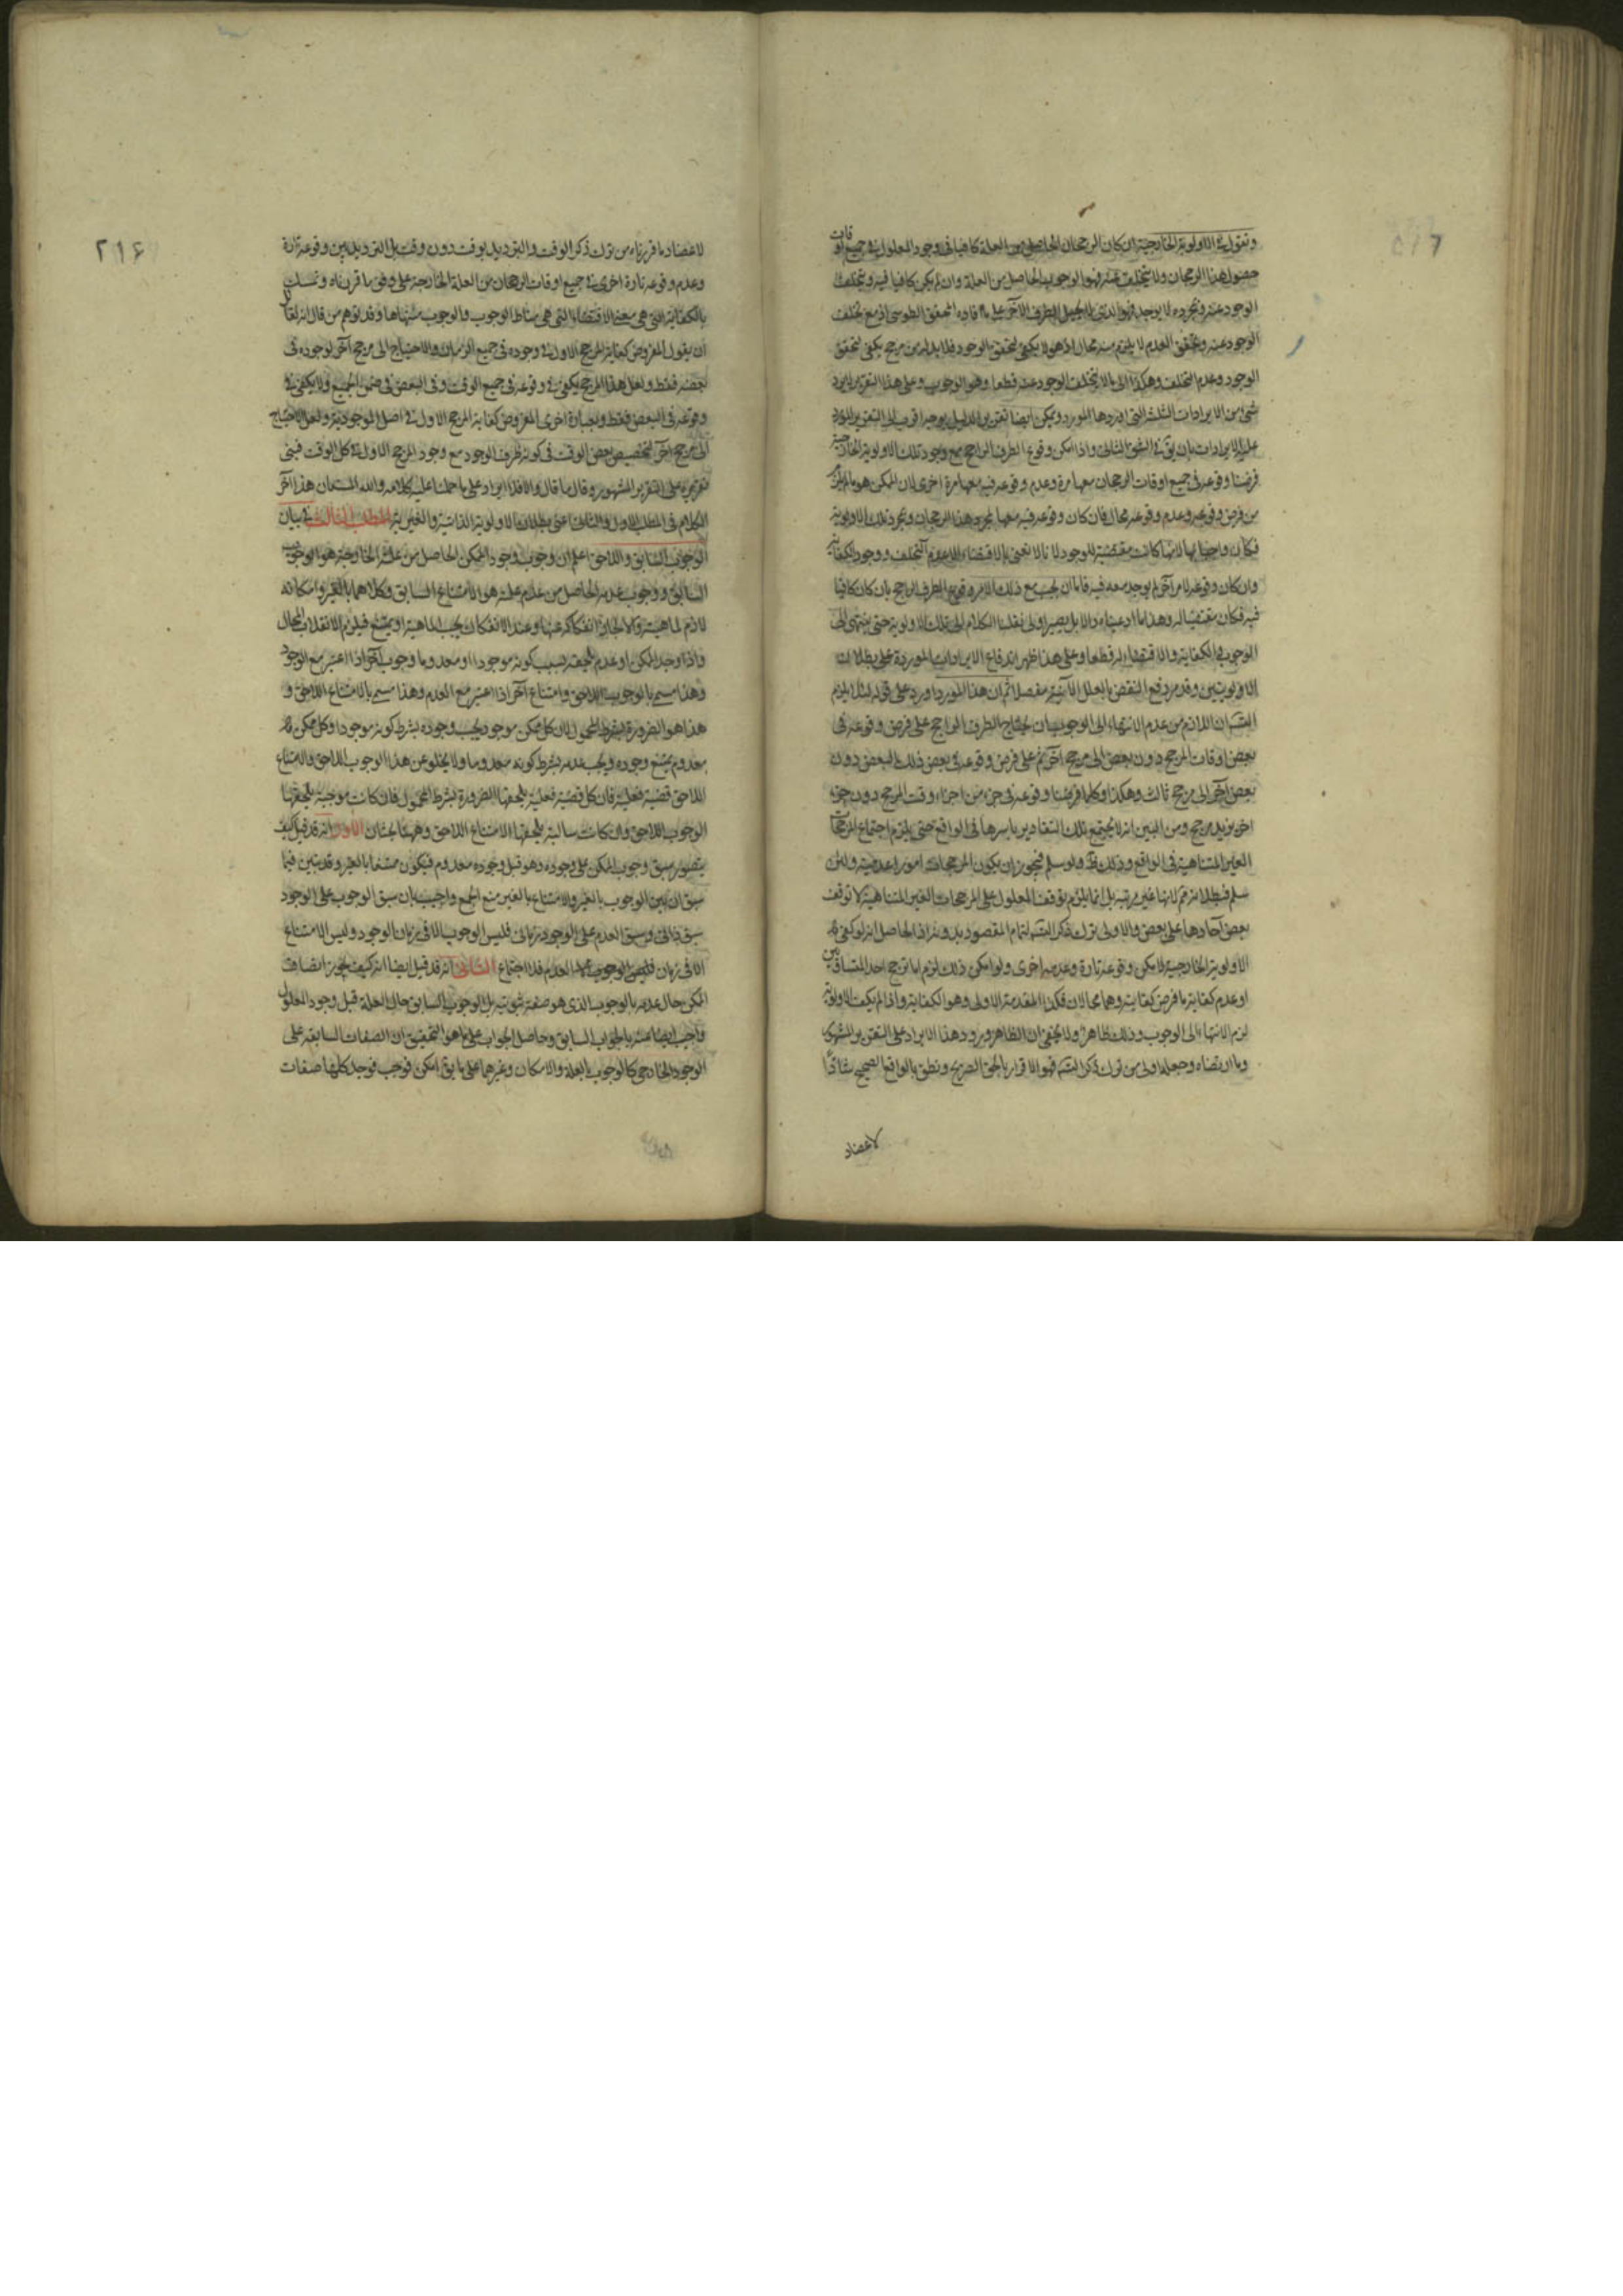 ونقول في الاولوية الخارجية ان كان الرجحان الحاصل من العلة كافيا في وجود المعلول في جميع اوقات
حصول هذا الرجحان ولا يتخلف عنه فهو الوجوب الحاصل من العلة وان لم يكن كافيا فيه ويتخلف
الوجود عنه وتحقق العدم لا يلزم منه محال اذ هو لا يكفي لتحقق الوجود فلا بد له من مرجح يكفي لتحقق
الوجود وعدم التخلف وهكذا الى ما لا يتخلف الوجود عنه قطعا وهو الوجوب وعلى هذا التقرير لا يرد
شئ من الايرادات الثلث التي اوردها المورد ويمكن ايضا تقرير الدليل بوجه اقرب الى التقرير المورد
عليه الايرادات بان يق في الشق الثاني واذا امكن وقوع الطرف الراجح مع وجود تلك الاولوية الخارجية
فرضنا وقوعه في جميع اوقات الرجحان معها مرة وعدم وقوعه فيه معها مرة اخرى لان الممكن هو ما لم يلزم
من فرض وقوعه وعدم وقوعه محال فان كان وقوعه فيه معها بمجرد هذا الرجحان وبمجرد تلك الاولوية
فكان واجبا بها لانها كانت مقتضية للوجود لانا لا نعني بالاقتضاء الا عدم التخلف ووجود الكفاية
وان كان وقوعه لامر آخر لم يوجد معه فيه فاما ان يجب مع ذلك الامر وقوع الطرف الراجح بان كان كافيا
فيه فكان مقتضيا له وهذا ما ادعيناه والا بل يصير اولى نقلنا الكلام الى تلك الاولوية حتى ينتهى الى
الوجوب والكفاية والاقتضاء له قطعا وعلى هذا ظهر اندفاع الايرادات الموردة على بطلان
الاولويتين وقد مر دفع النقض بالعلل الآنية مفصلا ثم ان هذا المورد اورد على قوله لئلا يلزم
التس ان اللازم من عدم الانتهاء الى الوجوب ان يحتاج الطرف الراجح على فرض وقوعه في
بعض اوقات المرجح دون بعض الى مرجح آخر ثم على فرض وقوعه في بعض ذلك البعض دون
بعض آخر الى مرجح ثالث وهكذا وكلما فرضنا وقوعه في جزء من اجزاء وقت المرجح دون جزء
آخر يزيد مرجح ومن البين انه لا يجتمع تلك التقادير باسرها في الواقع حتى يلزم اجتماع المرجحات
الغير المتناهية في الواقع وذلك ظ ولو سلم فيجوز ان يكون المرجحات امورا عدمية ولئن
سلم فبطلانه مم لانها غير مرتبة بل انما يلزم توقف المعلول على المرجحات الغير المتناهية لا توقف
بعض آحادها على بعض والاولى ترك ذكر التس لتمام المقصود بدونه اذ الحاصل انه لو كفى
الاولوية الخارجية لامكن وقوعه تارة وعدمه اخرى ولو امكن ذلك لزم اما ترجح احد المتساويين
او عدم كفاية ما فرض كفايته وهما محالان فكذا المقدمة الاولى وهو الكفاية واذا لم يكف الاولوية
لزم الانتهاء الى الوجوب وذلك ظاهر ولا يخفى ان الظاهر ورود هذا الايراد على التقرير المشهور
وما ارتضاه وجعله اولى من ترك ذكر التس فهو الاقرار بالحق الصريح ونطق بالواقع الصحيح
لاعضاد
٢١۶
لاعضاد ما قررناه من ترك ذكر الوقت والترديد بوقت دون وقت بل الترديد بين وقوعه تارة
وعدم وقوعه تارة اخرى في جميع اوقات الرجحان من العلة الخارجة على وفق ما قررناه وتمسك
بالكفاية التي هي معنى الاقتضاء التي هي مناط الوجوب والوجوب منتهاها وقد توهم من قال انه لقائل
ان يقول المفروض كفاية المرجح الاول في وجوده في جميع الزمان والاحتياج الى مرجح آخر لوجوده في
بعضه فقط ولعل هذا المرجح يكفي في وقوعه في جميع الوقت وفي البعض في ضمن الجميع ولا يكفي في
وقوعه في البعض فقط وبعبارة اخرى المفروض كفاية المرجح الاول في اصل الموجودية ولعل الاحتياج
الى مرجح آخر لتخصيص بعض الوقت في كونه ظرف الوجود مع وجود المرجح الاول في كل الوقت فبنى
تقريره على التقرير المشهور وقال ما قال والا فلا ايراد على ما حملنا عليه كلامه والله المستعان هذا آخر
الكلام في المطلب الاول والثاني اعني بطلان الاولوية الذاتية والغيرية المطلب الثالث في بيان
الوجوب السابق واللاحق اعلم ان وجوب وجود الممكن الحاصل من علته الخارجة هو الوجوب
السابق ووجوب عدمه الحاصل من عدم علته هو الامتناع السابق وكلاهما بالغير وامكانه
لازم لماهيته والا لجاز انفكاكه عنها وعند الانفكاك يجب الماهية او يمتنع فيلزم الانقلاب المحال
واذا وجد الممكن او عدم يلحقه بسبب كونه موجودا او معدوما وجوب آخر اذا اعتبر مع الوجود
وهذا مسمى بالوجوب اللاحق وامتناع آخر اذا اعتبر مع العدم وهذا مسمى بالامتناع اللاحق و
هذا هو الضرورة بشرط المحمول لان كل ممكن موجود يجب وجوده بشرط كونه موجودا وكل ممكن
معدوم يمتنع وجوده ويجب عدمه بشرط كونه معدوما ولا يخلو عن هذا الوجوب اللاحق والامتناع
اللاحق قضية فعلية فان كل قضية فعلية يلحقها الضرورة بشرط المحمول فان كانت موجبة يلحقها
الوجوب اللاحق وان كانت سالبة يلحقها الامتناع اللاحق وههنا بحثان الاول انه قد قيل كيف
يتصور سبق وجوب الممكن على وجوده وهو قبل وجوده معدوم فيكون ممتنعا بالغير وقد تبين فيما
سبق ان بين الوجوب بالغير والامتناع بالغير منع الجمع واجيب بان سبق الوجوب على الوجود
سبق ذاتي وسبق العدم على الوجود زماني فليس الوجوب الا في زمان الوجود وليس الامتناع
الا في زمان العدم فلا اجتماع الثاني انه قد قيل ايضا انه كيف يجوز اتصاف
الممكن حال عدمه بالوجوب الذي هو صفة ثبوتية بل الوجوب السابق حال العلة قبل وجود المعلول
واجيب ايضا عنه بالجواب السابق وحاصل الجواب على ما هو التحقيق ان الصفات السابقة على
الوجود الخارجي كالوجوب بالعلة والامكان وغيرهما على ما يق امكن فوجب فوجد كلها صفات